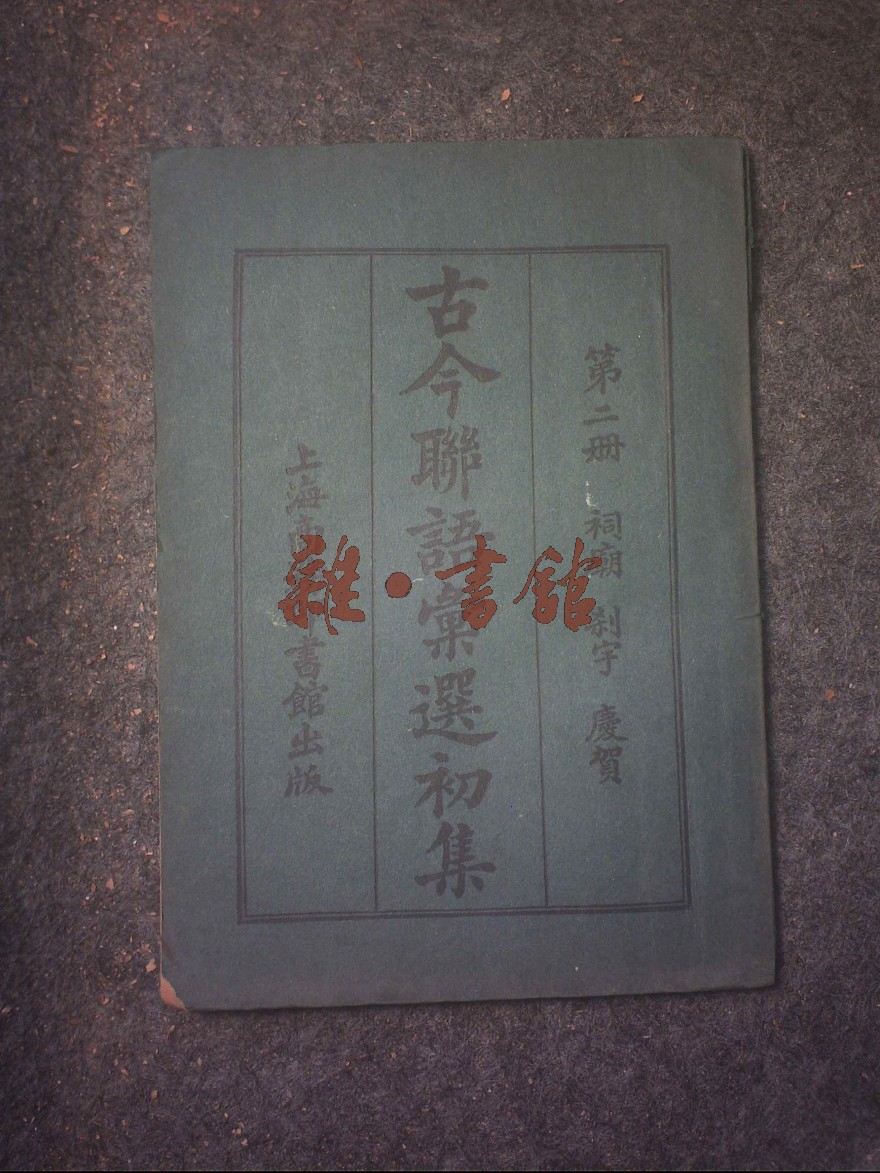 第二冊 祠廟 刹宇 慶賀
古今聯語彙選初集
上海商 書館出版
雜·書館